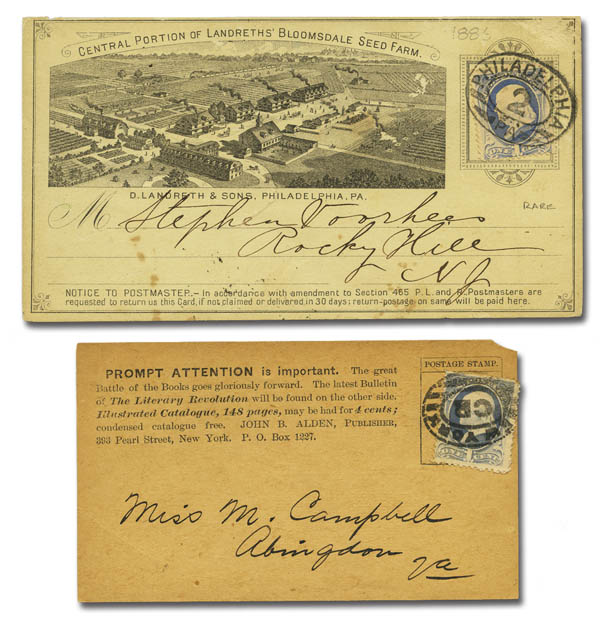 1883
CENTRAL PORTION OF LANDRETHS' BLOOMSDALE SEED FARM.
PHILADELPHIA
2
D. LANDRETH & SONS, PHILADELPHIA, PA.
RARE
M Stephen Voorhees
Rocky Hill
NJ
NOTICE TO POSTMASTER.- In accordance with amendment to Section 465 P.L. and R. Postmasters are
requested to return us this Card, if not claimed or delivered in 30 days; return-postage on same will be paid here.
PROMPT ATTENTION is important. The great
Battle of the Books goes gloriously forward. The latest Bulletin
of The Literary Revolution will be found on the other side.
Illustrated Catalogue, 148 pages, may be had for 4 cents;
condensed catalogue free. JOHN B. ALDEN, PUBLISHER,
393 Pearl Street, New York. P. O. Box 1227.
POSTAGE STAMP.
NEW YORK
Miss M. Campbell
Abingdon
Va